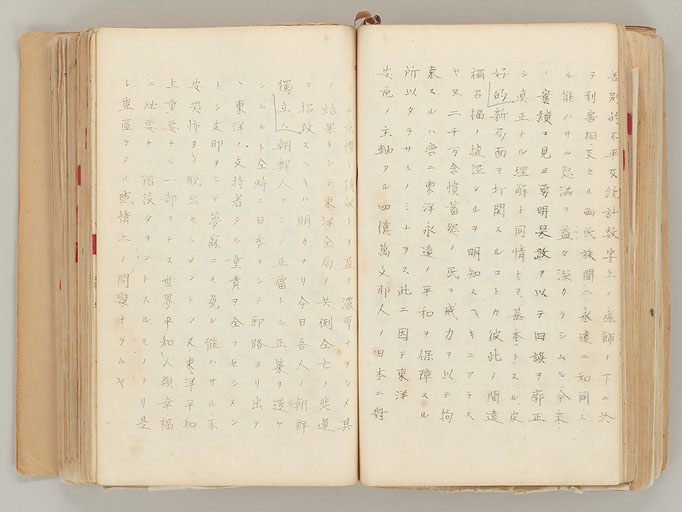 差別的不平及統計数字上ノ虚飾ノ下ニ於
テ利害相反セル両民族間ニ永遠ニ和同ス
ル能ハサル怨溝ヲ益々深カラシムル今来
ノ實績ヲ見ヨ勇明果敢ヲ以テ旧誤ヲ廓正
シ真正ナル理解ト同情トヲ基本トスル友
好的新局面ヲ打開スルコトカ彼此ノ間遠
禍召福ノ捷徑タルヲ明知スヘキニアラス
ヤ又二千万含憤蓄怨ノ民ヲ威力ヲ以テ拘
束スルハ啻ニ東洋永遠ノ平和ヲ保障スル
所以タラサルノミナラス此ニ因テ東洋
安危ノ主軸タル四億萬支那人ノ日本ニ對
トヲ益々濃厚ナラシメ其
ノ結果トシテ東洋全局ノ共倒全亡ノ悲運
ヲ招致スヘキハ明カナリ今日吾人ノ朝鮮
獨立ハ朝鮮人ヲシテ正當ナル正榮ヲ遂ケ
シムルト全時ニ日本ヲシテ邪路ヨリ出テ
、東洋ノ支持者タル重責ヲ全フセシメン
トシ支那ヲシテ夢寐ニモ免レ能ハサル不
安恐怖ヨリ脱出セシメントシ又東洋平和
上重要ナル一部ヲナス世界平和人類幸福
ニ必要ナル階段タラントスルモノナリ是
レ豈區々タル感情上ノ問題ナラムヤ